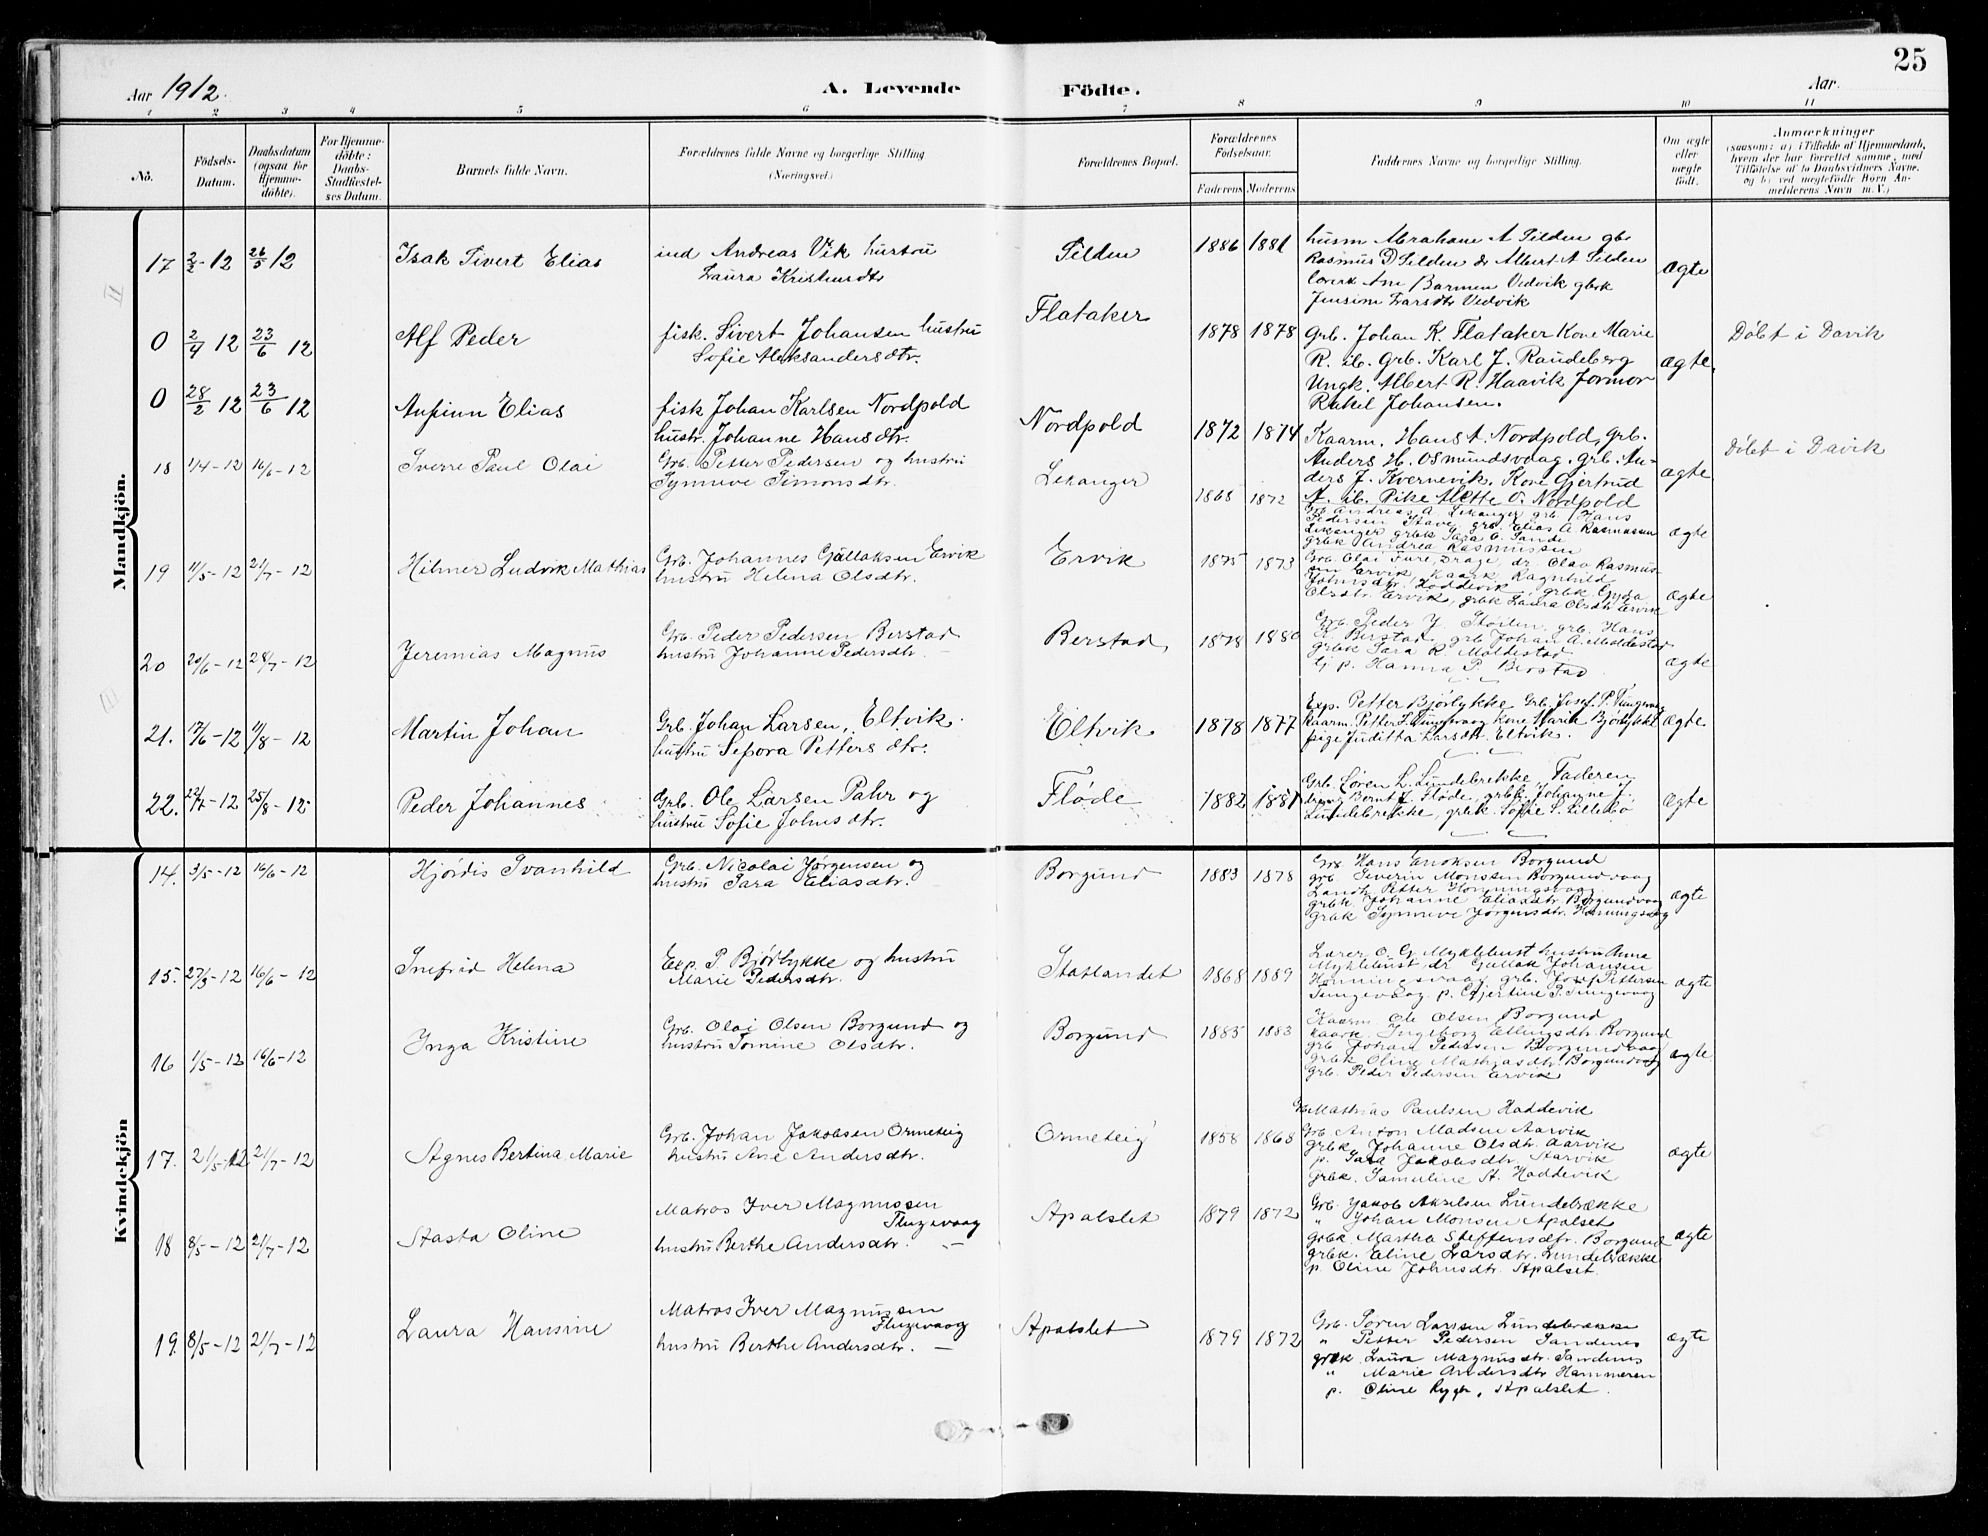 25
Aar 1912.
A. Levende Födte.
Aar.
1 2 3 4 5 6 7 8 9 10 11
No.
Födsels-Datum.
Daabsdatum (ogsaa for Hjemme-döbte).
For Hjemme-döbte: Daabs-Stadfæstel-ses Datum.
Barnets fulde Navn.
Forældrenes fulde Navne og borgerlige Stilling
(Næringsvei.)
Forældrenes Bopæl.
Forældrenes Födselsaar.
Faderens Moderens
Faddernes Navne og borgerlige Stilling.
Om ægte eller uægte födt.
Anmærkninger
(saasom: a) i Tilfælde af Hjemmedaab, hvem der har forrettet samme, med Tilföielse af to Daabsvidners Navne, og b) ved uægtefödte Börn An-melderens Navn m. V.)
Mandkjön.
17 2/2-12 26/5 12 Isak Sivert Elias
ind Andreas Vik hustru
Laura Kristensdtr
Silden 1886 1881
husm Abraham A Silden gbr
Rasmus D Silden dr Albert A Silden
Barmen Vedvik gbrk
Jensine Larsdtr Vedvik
ægte
0 2/4 12 23/6 12 Alf Peder
fisk. Sivert Johansen hustru
Sofie Aleksandersdtr.
Flataker 1878 1878
Grb. Johan K. Flataker Kone Marie
R. ib. Grb. Karl J. Raudeberg
Ungk. Albert R. Haavik Jormor
Rakel Johansen.
ægte.
Döbt i Davik
0 28/2 12 23/6 12 Anfinn Elias
fisk Johan Karlsen Nordpold
hustr. Johanne Hansdtr.
Nordpold 1872 1874
Kaarm. Hans A. Nordpold, Grb.
Anders H. Osmundsvaag. grb. An-
ders J. Kvernevik. Kone Gjertrud
A. ib. Pike Mette O. Nordpold
ægte
Döbt i Davik
18 1/4-12 16/6-12 Sverre Paul Olai
Grb. Petter Pedersen og hustru
Synneve Simonsdtr.
Lekanger 1868 1872
Grb Andreas A. Lekanger grb. Hans
Pedersen Stave, grb. Elias A Rasmussen
Lekanger grbk Sara O. Sande
grbk Andrea Rasmussen
ægte
19 11/5-12 21/7-12 Hilmer Ludvik Mathias
Grb. Johannes Gullaksen Ervik
hustru Helena Olsdtr.
Ervik 1875 1873
Grb. Olai Fure, Drage, dr. Olav Rasmus-
sen Ervik, Kaark. Ragnhild
Johnsdtr. Hoddevik, grbk Gyda
Olsdtr. Ervik, grbk Laura Olsdtr Ervik
ægte
20 20/6-12 28/7-12 Jeremias Magnus
Grb. Peder Pedersen Berstad
hustru Johanne Pedersdtr. -
Berstad 1878 1880
Grb. Peder J. Stoilen, grb. Hans
K. Berstad, grb Johan A. Moldestad
grbk Sara R. Moldestad
p. Hanna P. Berstad
ægte
21. 17/6-12 11/8-12 Martin Johan
Grb. Johan Larsen, Eltvik.
hustru Sefora Pettersdtr.
Eltvik 1878 1877
Exp. Petter Bjørlykke Grb. Josef P. Tungevaag
kaarm. Petter S. Tungevaag Kone Marie Bjørlykke
pige Juditta Larsdtr. Eltvik.
ægte
22. 22/7-12 25/8-12 Peder Johannes
Grb. Ole Larsen Pahr og
hustru Sofie Johnsdtr.
Fløde 1882 1881
Grb. Søren L. Lundebrekke, Faderen,
dreng Bernt J. Fløde, grbk. Johanne J.
Lundebrekke, grbk. Sofie S. Lillebø
ægte
Kvindekjön
14. 3/5-12 16/6-12 Hjørdis Svanhild
Grb. Nicolai Jørgensen og
hustru Sara Eliasdtr.
Borgund 1883 1878
Grb Hans Enoksen Borgund
grb Severin Monssen Borgundvaag
Landh. Petter Honningsvaag.
grbk. Johanne Eliasdtr. Borgundvaag
grbk Synneve Jørgensdtr. Honningsvaag
ægte
15. 27/3-12 16/6-12 Inefrid Helena
Exp. P Bjørlykke og hustru
Marie Pedersdtr.
Statlandet 1868 1889
Lærer O. G. Myklebust hustru Anna
Myklebust, dr Gullak Johansen
Honningsvaag, grb. Josef Pettersen
Tungevaag p. Gjertine P. Tungevaag
ægte
16 1/5-12 16/6-12 Inga Kristine
Grb. Olai Olsen Borgund og
hustru Tomine Olsdtr.
Borgund 1885 1883
Kaarm. Ole Olsen Borgund
kaark Ingeborg Ellingsdtr Borgund
grb Johan Pedersen Borgundvaag
grbk Oline Mathiasdtr. Borgundvaag
Grb. Peder Pedersen Ervik
ægte
17. 21/5-12 21/7-12 Agnes Bertina Marie
Grb. Johan Jakobsen Ormeteig
hustru Ane Andersdtr.
Ormeteig 1858 1868
Grb Mathias Paulsen Hoddevik
Grb. Anton Madsen Aarvik
grbk Johanne Olsdtr. Aarvik
p. Sara Jakobsdtr. Aarvik
Grbk. Samuline A. Hoddevik
ægte
18 8/5-12 21/7-12 Aasta Oline
Matros Iver Magnussen
Flugevaag
hustru Berthe Andersdtr. -
Apalslet 1879 1872
Grb. Jakob Akselsen Lundebrække
" Johan Monsen Apalset
grbk Martha Steffensdtr. Borgund
grbk. Eline Larsdtr. Lundebrække
p. Oline Johnsdtr. Apalset.
ægte
19. 8/5-12 21/7-12 Laura Hansine
Matros Iver Magnussen
Flugevaag
hustru Berthe Andersdtr. -
Apalslet 1879 1872
Grb. Søren Larssen Lundebrække
" Petter Pedersen Sandenes
grbk. Laura Magnusdtr. Sandenes
" Marie Andersdtr Hammeren
p. Oline Rygh, Apalslet.
ægte